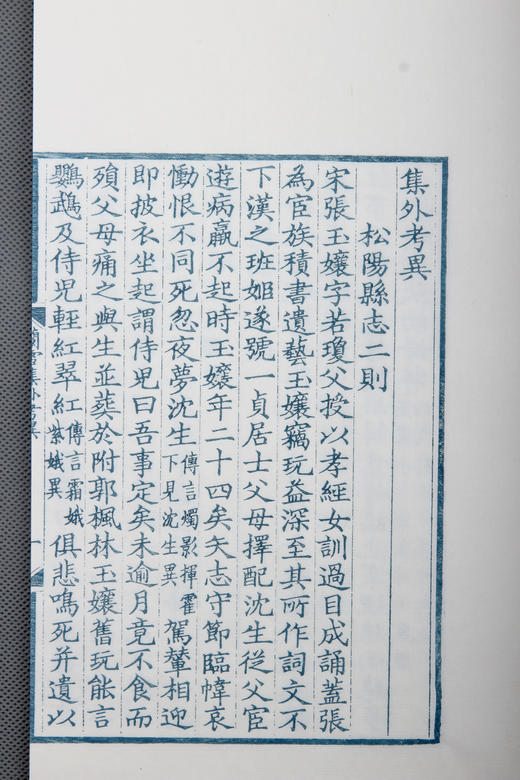 集外考異
松陽縣志二則
宋張玉孃字若瓊父授以孝經女訓過目成誦蓋張
為宦族積書遺藝玉孃竊玩益深至其所作詞文不
下漢之班姬遂號一貞居士父母擇配沈生從父宦
遊病羸不起時玉孃年二十四矣矢志守節臨幃哀
慟恨不同死忽夜夢沈生傳言燭影揮霍下見沈生異駕輦相迎
即披衣坐起謂侍児曰吾事定矣未逾月竟不食而
殞父母痛之與生並葬於附郭楓林玉孃舊玩能言
鸚鵡及侍児輕紅翠紅傳言霜娥紫娥異俱悲鳴死并遺以